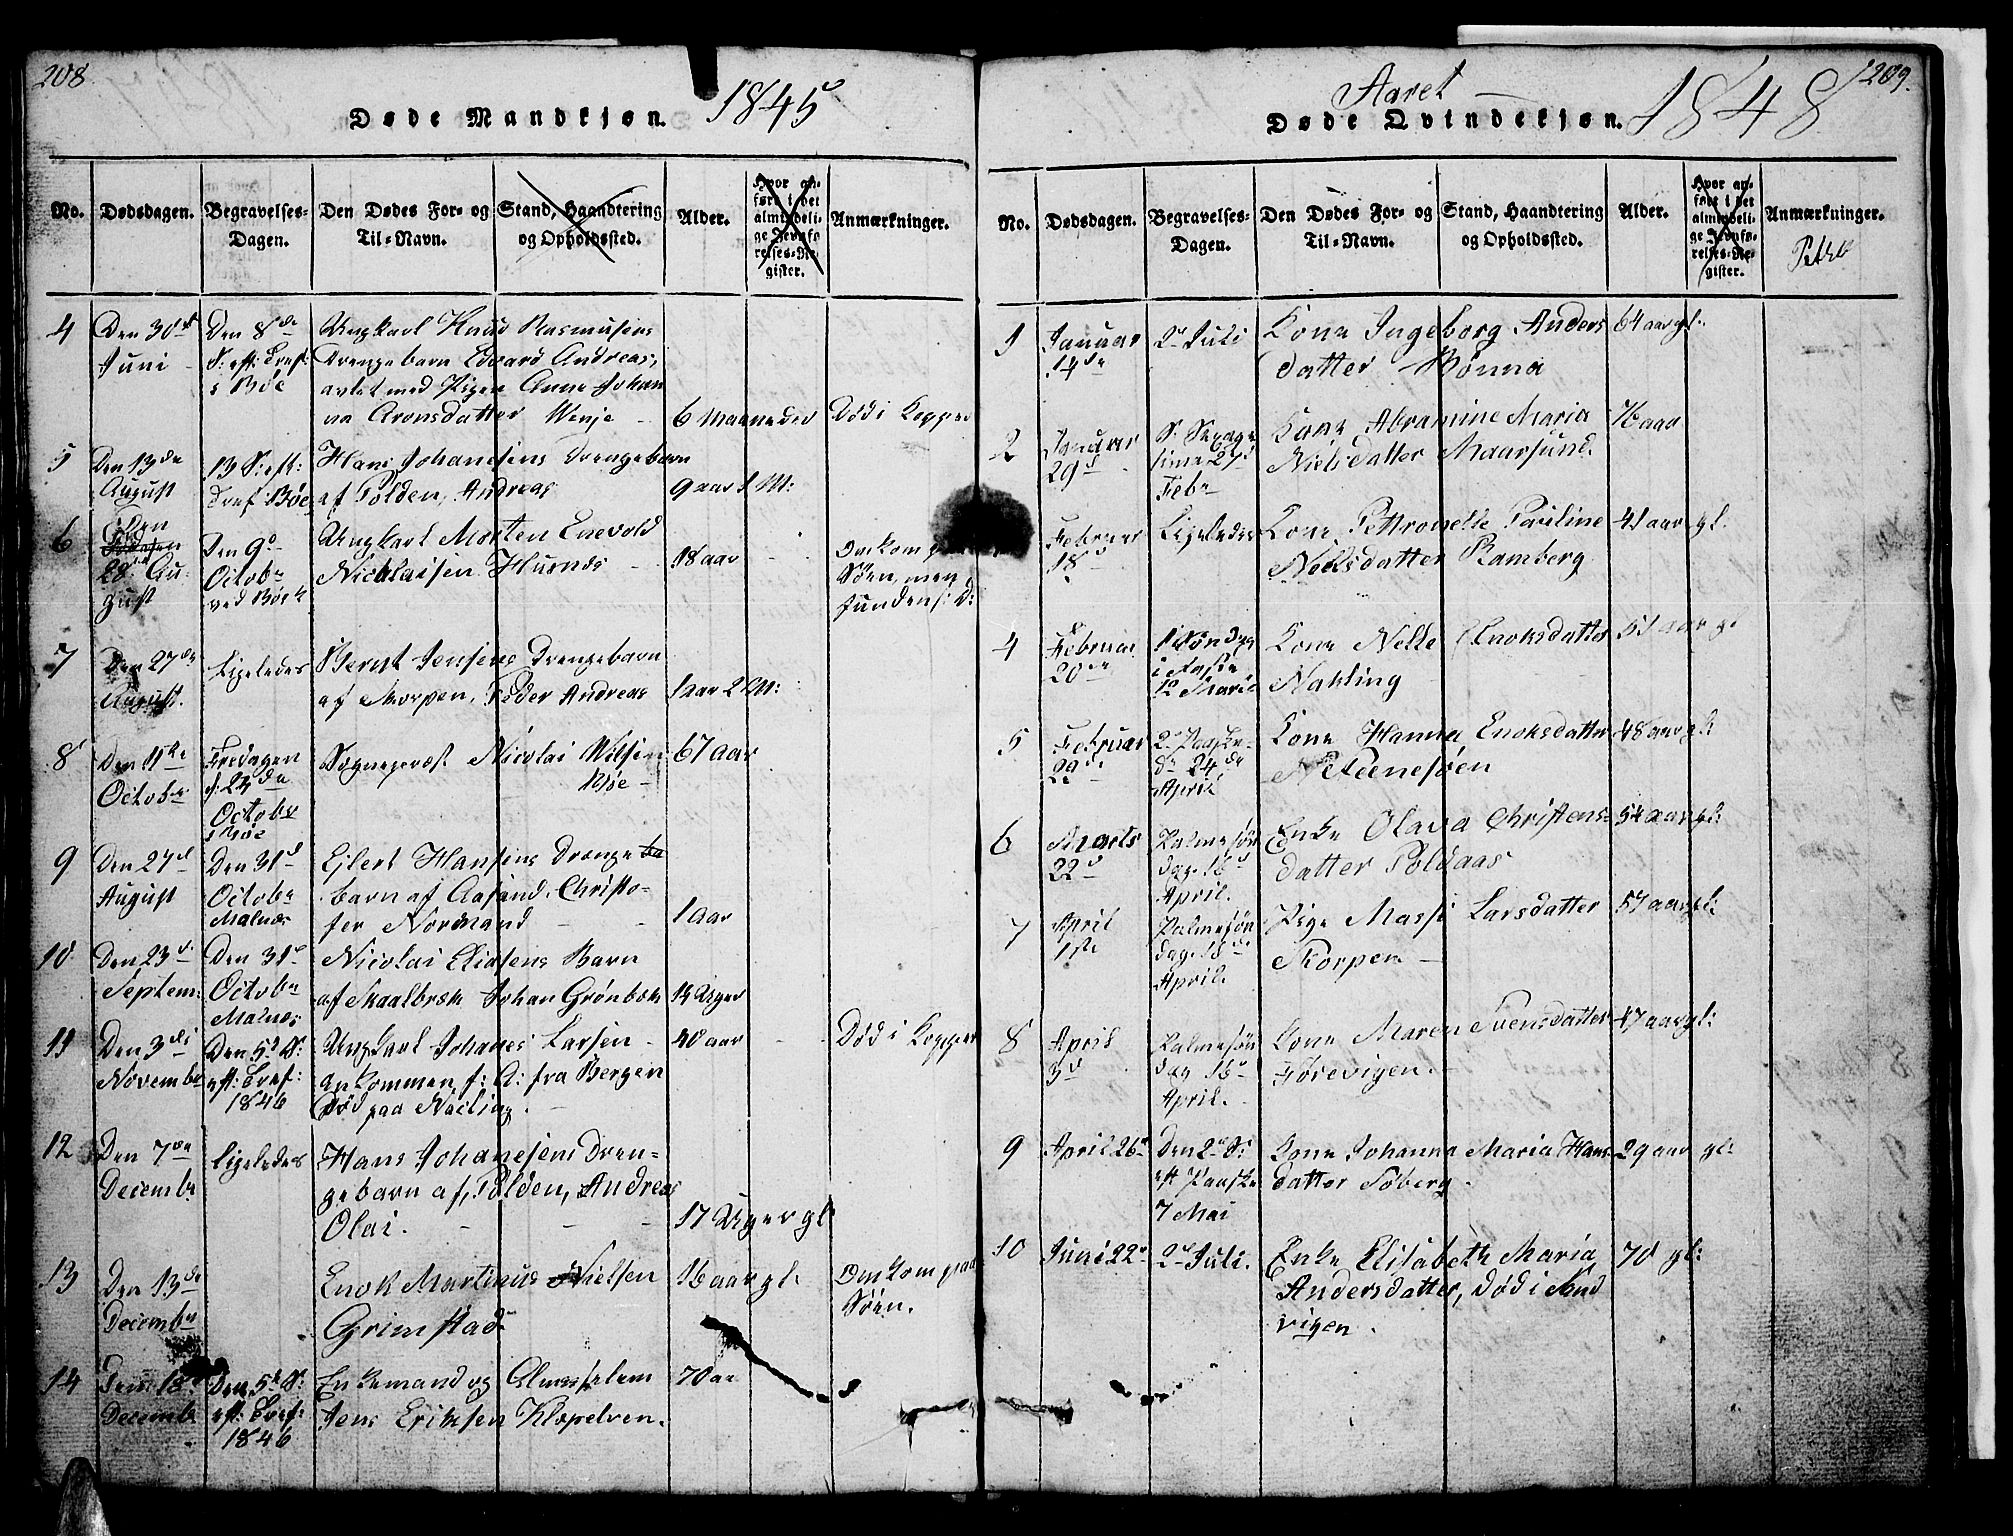 208
Døde Mandkjøn. 1845
No.
Dødsdagen.
Begravelses-
Dagen.
Den Dødes For- og
Til-Navn.
Stand, Haandtering
og Opholdssted.
Alder.
Hvor an-
ført i det
almindeli-
ge Jevnfø-
relses-Re-
gister.
Anmærkninger.
4
Den 30te
Juni
Den 8de
S: eft: Tref:
i Böe
Ungkarl Knud Rasmusens
Drengebarn Edvard Andreas,
avlet med Pigen Anne Johan
na Aronsdatter Menje
6 Maaneder
Död i Kopper
5
Den 13de
August
13 S: eft:
Tref: Böe
Hans Johanesens Drengebarn
af Polden, Andreas
9 aar 1 M:
6
Den
28de Au-
gust
Den 9de
Octobr
ved Böe K
Ungkarl Morten Enevold
Nicolaisen Husnes
18 aar
Omkom paa
Söen, men
funden
7
Den 27de
August.
Ligeledes
Bernt Jensens Drengebarn
af Skorpen, Peder Andreas
1 aar 2 M:
8
Den 11te
Octobr
Fredagen
d: 24de
Octobr
i Böe
Sognepræst Nicolai Nilsen
Böe
67 aar
9
Den 27de
August
Den 31te
Octobr
Malnæs
Ejlert Hansens Drenge ba
barn af Aasand, Christo-
fer Normand
1 Aar
10
Den 23de
Septem:
Den 31te
Octobr
Malnæs
Nicolai Eliasens Barn
af Skaalbrek Johan Grönbek
14 Uger
11
Den 3die
Novembr
Den 5te S:
eft: Tref:
1846
Ungkarl Johanes Larsen
ankommen f: A: fra Bergen
Död paa Nacling.
40 aar
Död i Kopper
12
Den 7de
Decembr
Ligeledes
Hans Johanesens Dren-
gebarn af Polden, Andreas
Olai.
17 Uger gl:
13
Den 13de
Decembr
Enok Martinus Nielsen
Grimstad
16 aar gl:
Omkom paa
Söen.
14
Den 18
Decembr
Den 5te S:
eft: Tref:
1846
Enkemand og Almisselem
Jens Eriksen Klopelven.
70 aa
209.
Aaret
Døde Qvindekjøn. 1848
No.
Dødsdagen.
Begravelses-
Dagen.
Den Dødes For- og
Til-Navn.
Stand, Haandtering
og Opholdssted.
Alder.
Hvor an-
ført i det
almindeli-
ge Jevnfø-
relses-Re-
gister.
Anmærkninger.
1
Januar
14de
2de Juli
Kone Ingeborg Anders
datter Rönna
64 aar gl:
2
Januar
29de
S. Sexage
sima 27de
Febr
Kone Abramine Maria
Nielsdatter Maarsund.
76 aar
3
Februar
18de
Ligeledes
Kone Pettronelle Pauline
Nielsdatter Ramberg
41 aar gl:
4
Februar
20de
1 Söndag
i Faste
12 Marts
Kone Nelle Enoksdatter
Nakling
51 aar gl
5
Februar
29de
2den Paaske-
d: 24de
April
Kone Hanna Enoksdatter
Steenesöen
48 aar gl:
6
Marts
22de
Palmesön
dag 16de
April.
Enke Olava Christens-
datter Poldaas
54 aar gl:
7
April
1ste
Palmesön
dag 16de
April.
Pige Massi Larsdatter
Skorpen
57 aar gl:
8
April
3de
Palmesön
dag 16de
April.
Kone Maren Svensdatter
Förevigen.
47 aar gl:
9
April 26de
Den 2den S:
eft Paaske
7 Mai
Kone Johanna Maria Hans
datter Söberg.
29 aar gl:
10
Juni 22de
2de Juli.
Enke Elisabeth Maria
Andersdatter, Död i Sand
vigen.
70 gl: